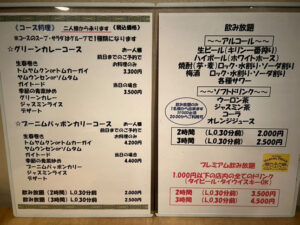 《コース料理》 二人様から承ります (税込価格)
※コースのスープ・サラダはグループで1種類になります
☆グリーンカレーコース お一人様
前日までのご予約で
生春巻き お料理のみ
トムヤムクンorトムカーガイ 3.300円
ヤムウンセンorソムタム
ガイトード 当日の場合
季節の青菜炒め 3.500円
グリーンカレー
ジャスミンライス
デザート
☆プーニムパッポンカリーコース お一人様
前日までのご予約で
生春巻き お料理のみ
トムヤムクンorトムカーガイ 4.200円
ヤムウンセンorソムタム
ガイトード 当日の場合
季節の青菜炒め 4.500円
プーニムパッポンカリー
ジャスミンライス
デザート
飲み放題 (2時間) (L.O.30分前) 2.000円
飲み放題 (3時間) (L.O.30分前) 2.500円
飲み放題
~~アルコール~~
生ビール(キリン一番搾り)
ハイボール(ホワイトホース)
焼酎(芋・麦)ロック・水割り・ソーダ割り
梅酒 ロック・水割り・ソーダ割り
各種サワー
~~ソフトドリンク~~
ウーロン茶
ジャスミン茶
コーラ
オレンジジュース
2時間 (L.O.30分前) 2.000円
3時間 (L.O.30分前) 2.500円
プレミアム飲み放題
1.000円以下の店内の全てのドリンク
(タイビール・タイウイスキーOK)
2時間 (L.O.30分前) 3.500円
3時間 (L.O.30分前) 4.500円